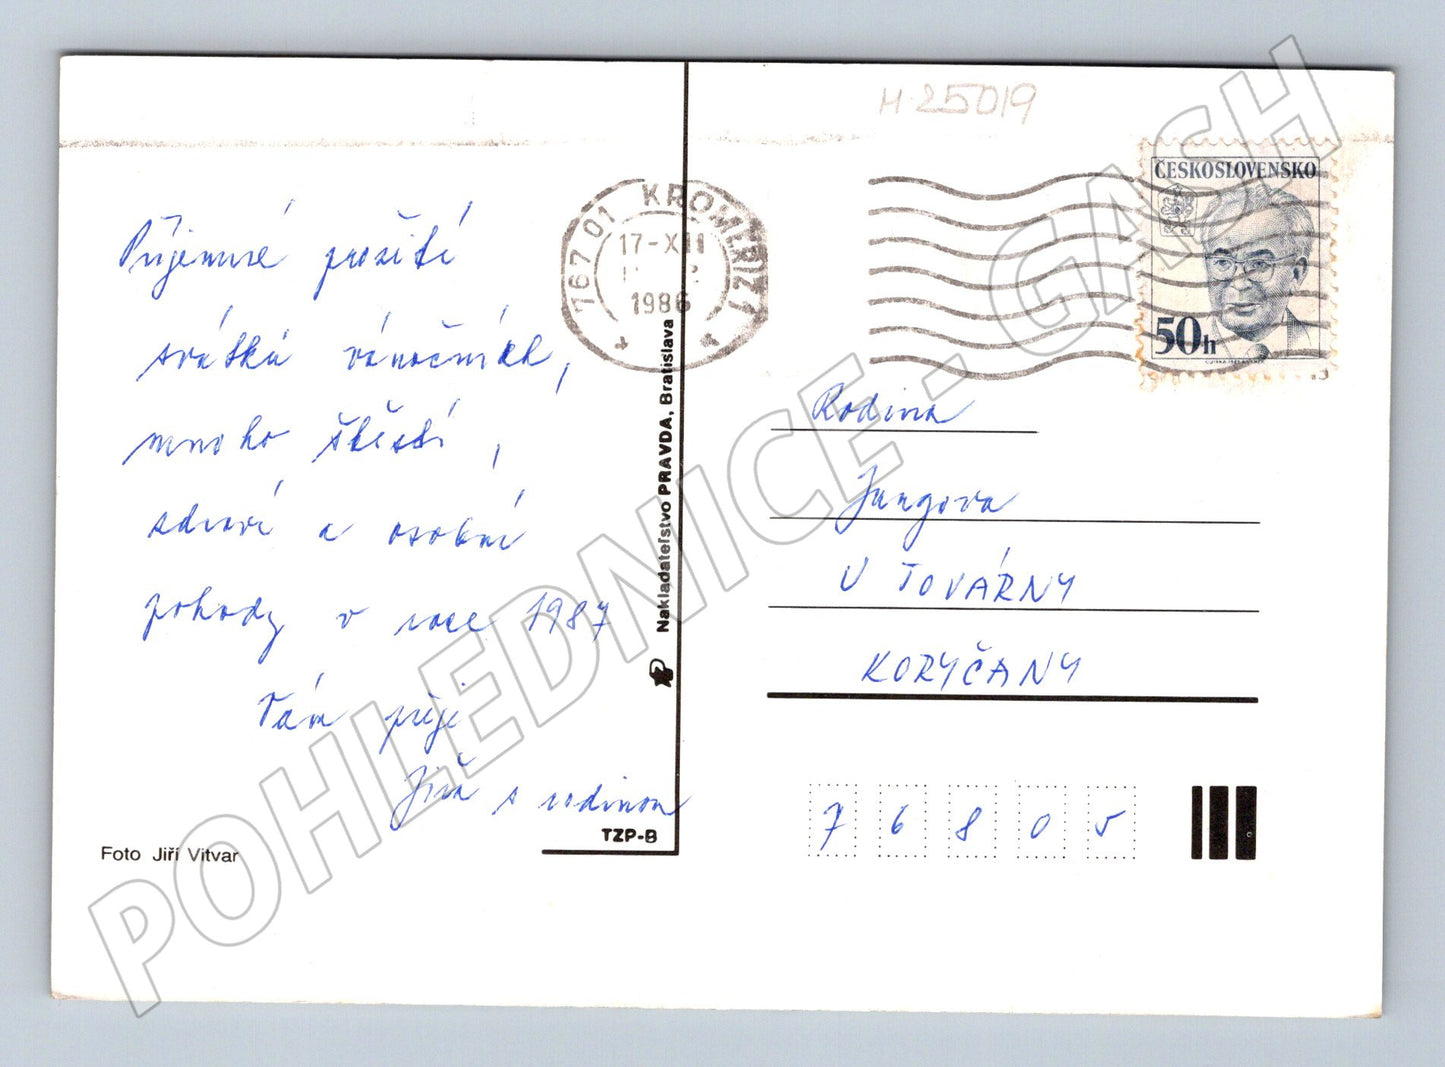 H 25019
ČESKOSLOVENSKO
50h
767 01 KROMĚŘÍŽ 1
17-XII
1986
Příjemné prožití
svátků vánočních,
mnoho štěstí,
zdraví a osobní
pohody v roce 1987
Vám přeje
Jiří s rodinou
Foto Jiří Vitvar
TZP-B
Nakladateľstvo PRAVDA, Bratislava
Rodina
Jungova
U TOVÁRNY
KORYČANY
7 6 8 0 5
POHLEDNICE - GASH